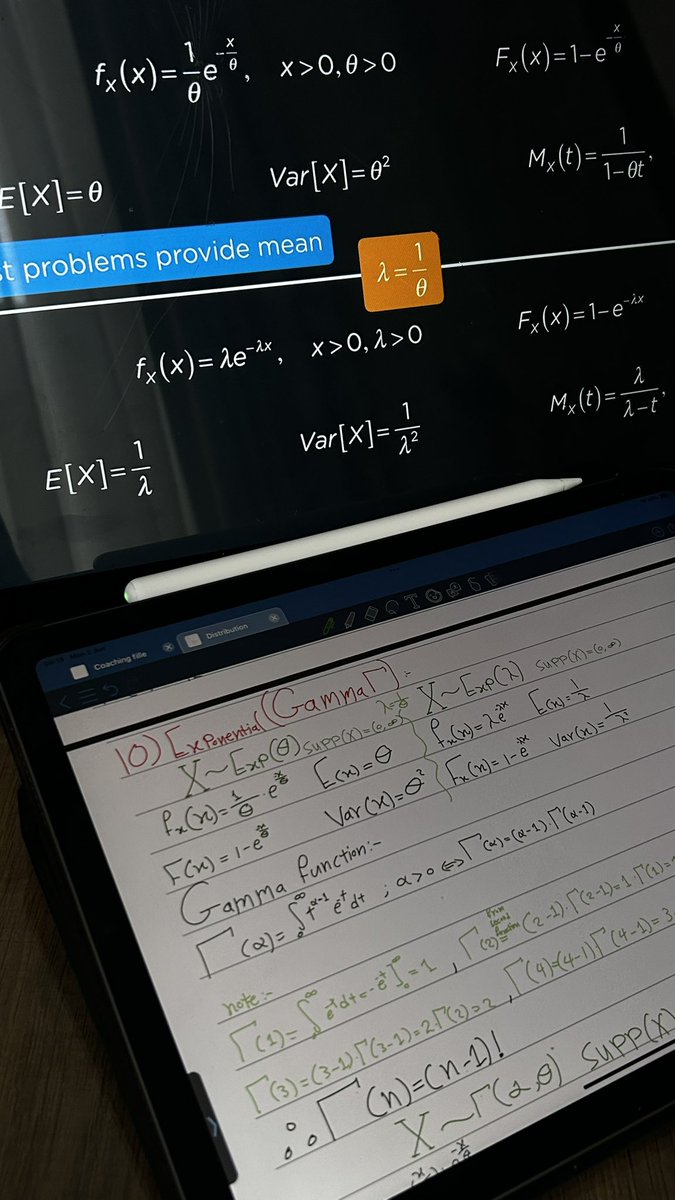 fₓ(x)=1/θ e^(-x/θ), x>0,θ>0 Fₓ(x)=1-e^(-x/θ)
E[X]=θ Var[X]=θ² Mₓ(t)=1/(1-θt),
st problems provide mean
λ=1/θ
fₓ(x)=λe^(-λx), x>0,λ>0 Fₓ(x)=1-e^(-λx)
E[X]=1/λ Var[X]=1/λ² Mₓ(t)=λ/(λ-t),
Coaching file Distribution
10) Exponential (Gamma Γ):-
X~Exp(θ) supp(x)=(0,∞) λ=1/θ X~Exp(λ) supp(x)=(0,∞)
fₓ(x)=1/θ·e^(-x/θ) E(x)=θ fₓ(x)=λe^(-λx) E(x)=1/λ
F(x)=1-e^(-x/θ) Var(x)=θ² Fₓ(x)=1-e^(-λx) Var(x)=1/λ²
Gamma function:-
Γ(α)=∫₀^∞ t^(α-1) e^(-t) dt ; α>0 ⇔ Γ(α)=(α-1)·Γ(α-1)
note:-
Γ(1)=∫₀^∞ e^(-t)dt=-e^(-t)]₀^∞=1 , Γ(2)=(2-1)·Γ(2-1)=1·Γ(1)=
Γ(3)=(3-1)·Γ(3-1)=2Γ(2)=2 , Γ(4)=(4-1)Γ(4-1)=3
∴Γ(n)=(n-1)!
X~Γ(α,θ) supp(x)